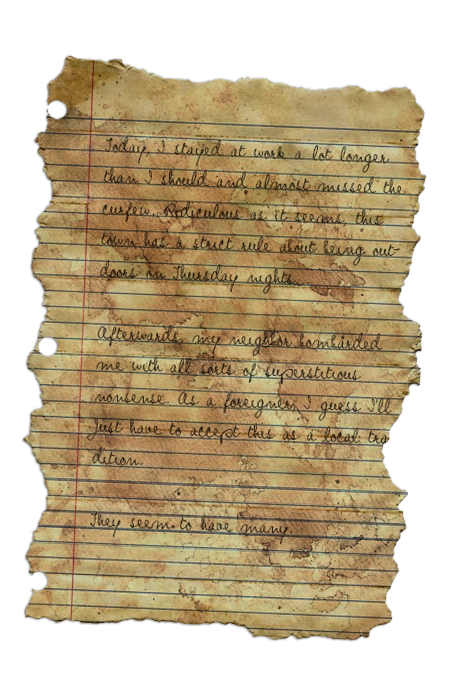 Today, I stayed at work a lot longer
than I should and almost missed the
curfew. Ridiculous as it seems, this
town has a strict rule about being out-
doors on Thursday nights.
Afterwards, my neighbor bombarded
me with all sorts of superstitious
nonsense. As a foreigner, I guess I'll
just have to accept this as a local tra
dition.
They seem to have many.